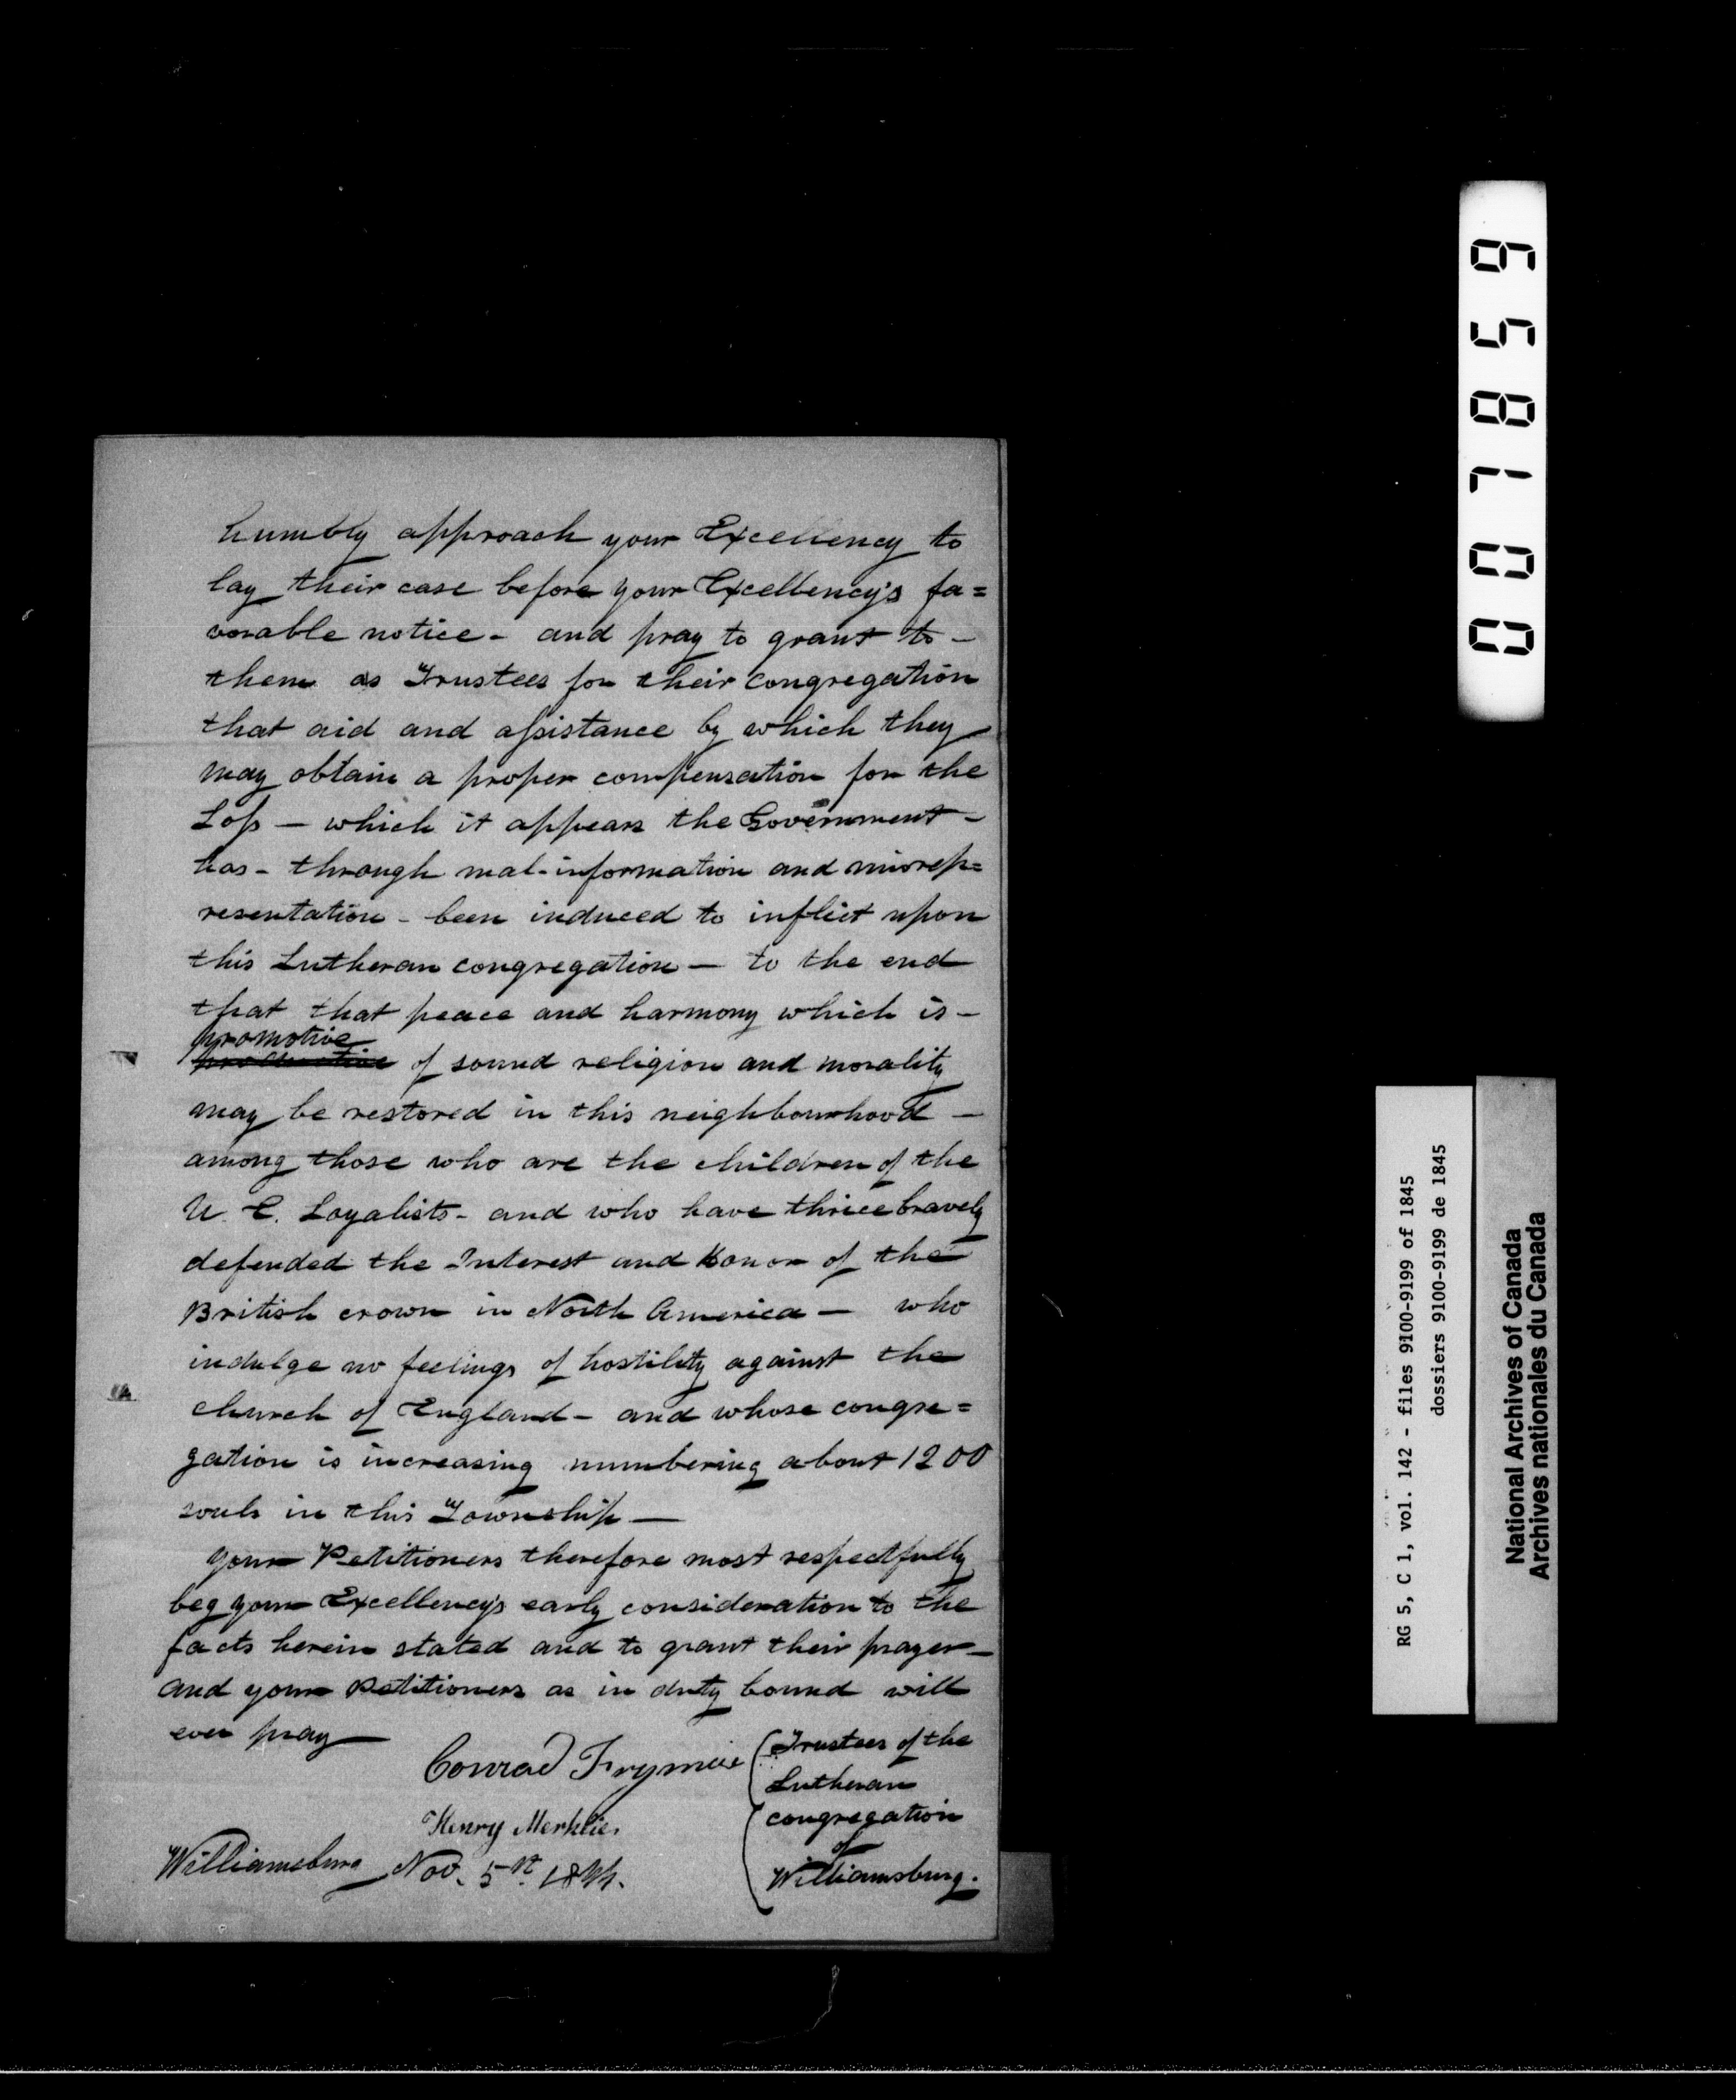 humbly approach your Excellency to
lay their case before your Excellency's fa=
vorable notice - and pray to grant to -
them as Trustees for their congregation
that aid and assistance by which they
may obtain a proper compensation for the
Loss — which it appears the Government -
has - through mal-information and misrep=
resentation - been induced to inflict upon
this Lutheran congregation — to the end
that that peace and harmony which is -
promotive
productive of sound religion and morality
may be restored in this neighbourhood —
among those who are the children of the
U. E. Loyalists - and who have thrice bravely
defended the Interest and Honor of the
British crown in North America — who
indulge no feelings of hostility against the
church of England - and whose congre=
gation is increasing numbering about 1200
souls in this Township —
your Petitioners therefore most respectfully
beg your Excellency's early consideration to the
facts herein stated and to grant their prayer —
and your Petitioners as in duty bound will
ever pray —
Conrad Frymire
Henry Merklie.
Trustees of the
Lutheran
congregation
of
Williamsburg.
Williamsburg Nov. 5th 1844.
007859
RG 5, C 1, vol. 142 - files 9100-9199 of 1845
dossiers 9100-9199 de 1845
National Archives of Canada
Archives nationales du Canada